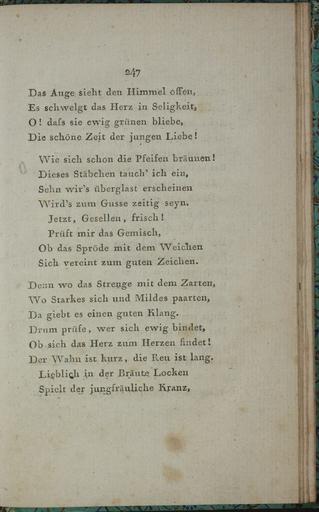 247
Das Auge sieht den Himmel offen,
Es schwelgt das Herz in Seligkeit,
O! daſs sie ewig grünen bliebe,
Die schöne Zeit der jungen Liebe!
Wie sich schon die Pfeifen bräunen!
Dieses Stäbchen tauch' ich ein,
Sehn wir's überglast erscheinen
Wird's zum Gusse zeitig seyn.
Jetzt, Gesellen, frisch!
Prüft mir das Gemisch,
Ob das Spröde mit dem Weichen
Sich vereint zum guten Zeichen.
Denn wo das Strenge mit dem Zarten,
Wo Starkes sich und Mildes paarten,
Da giebt es einen guten Klang.
Drum prüfe, wer sich ewig bindet,
Ob sich das Herz zum Herzen findet!
Der Wahn ist kurz, die Reu ist lang.
Lieblich in der Bräute Locken
Spielt der jungfräuliche Kranz,